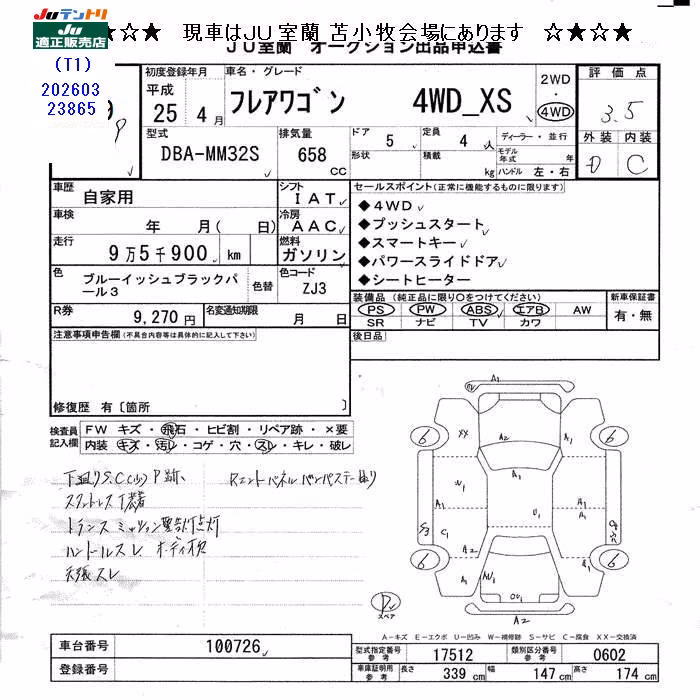 JUテントリ
JU
適正販売店
☆★☆ 現車はJU室蘭 苫小牧会場にあります ☆★☆
JU室蘭 オークション出品申込書
(T1)
202603
23865
初度登録年月
平成
25 4月
車名・グレード
フレアワゴン 4WD_XS
2WD
・
4WD
評価点
3.5
外装 内装
D C
型式
DBA-MM32S
排気量
658
CC
ドア
5
形状
定員
4 人
積載
kg
ディーラー・並行
モデル年式 年
ハンドル 左・右
車歴
自家用
シフト
IAT
車検
年 月( 日)
冷房
AAC
走行
9万5千900 km
燃料
ガソリン
色
ブルーイッシュブラックパール3
色替
色コード
ZJ3
R券
9,270円
名変通知期限
月 日
セールスポイント(正常に機能するものに限ります)
◆4WD
◆プッシュスタート
◆スマートキー
◆パワースライドドア
◆シートヒーター
装備品(純正品に限り○をつけてください)
PS PW ABS エアB AW
SR ナビ TV カワ
新車保証書
有・無
後日品
注意事項申告欄(不具合内容等は具体的に記入して下さい)
修復歴 有〔箇所 〕
検査員記入欄
FW キズ・飛石・ヒビ割・リペア跡・×要
内装 キズ・汚レ・コゲ・穴・スレ・キレ・破レ
下廻りS.C(小)P跡、
Rエンドパネルバンパステー曲り
スタットレス丁装着
トランスミッション警告灯点灯
ハンドルスレ ボディ小キズ
天張スレ
A1
A2
XX
6
6
6
6
W1
A1
U1
A1
A1
S3
C1
A2
A2
AU1
スペア
A2
A-キズ E-エクボ U-凹み W-補修跡 S-サビ C-腐食 XX-交換済
車台番号
100726
登録番号
型式指定番号
参考
17512
類別区分番号
参考
0602
車庫証明用
参考
長さ
339 cm
幅
147 cm
高さ
174 cm